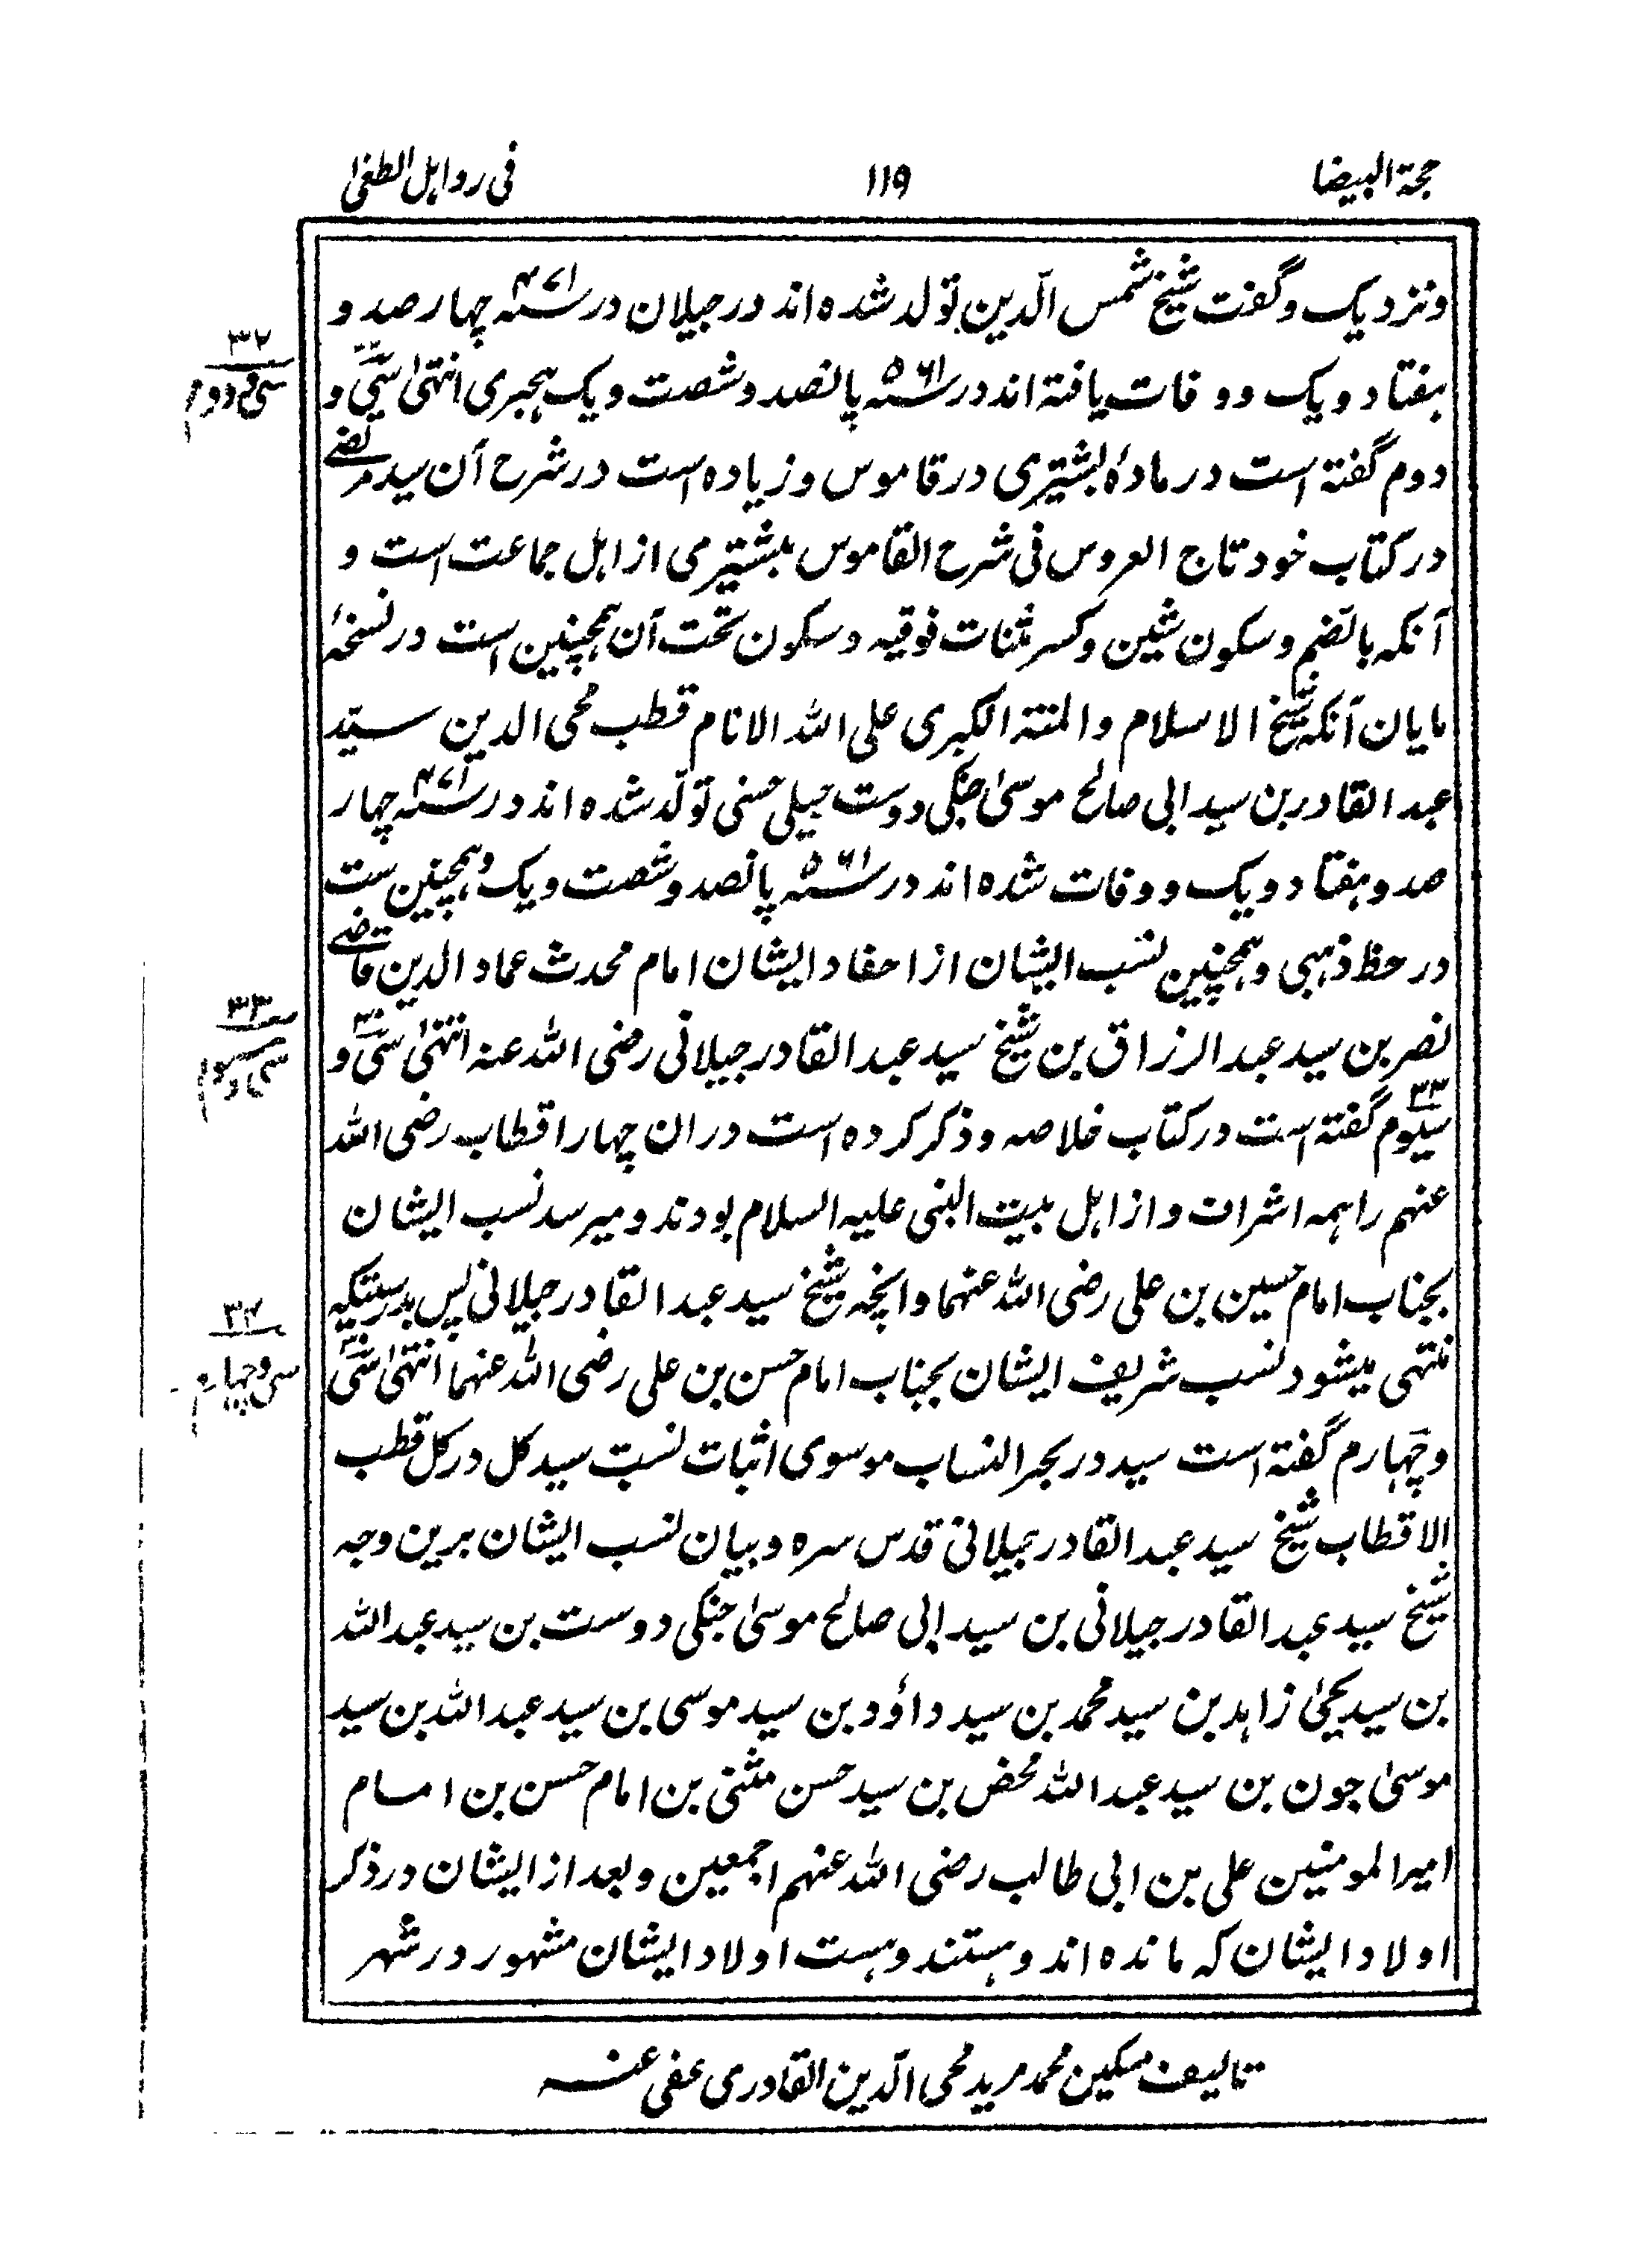 حجة البیضا ۱۱۹ فی رد اہل الطغیٰ
ونزدیک وگفت شیخ شمس الدّین تولد شده اند در جیلان در ۴۷۱سنہ چہار صد و
ہفتاد ویک ووفات یافتہ اند در ۵۶۱سنہ پانصد وشصت ویک ہجری انتہیٰ سی و
۳۲
سی و دوم
دوم گفتہ است در مادۂ بشتیری در قاموس وزیاده است در شرح آن سید مرتضے
در کتاب خود تاج العروس فی شرح القاموس بشتیری از اہل جماعت است و
آنکہ بالضم وسکون شین وکسر مثنات فوقیہ وسکون تحت آن ہمچنین است در نسخۂ
مایان آنکہ شیخ الاسلام والمنتہ الکبری علی اللہ الانام قطب محی الدین سیّد
عبد القادر بن سید ابی صالح موسیٰ جنگی دوست جیلی حسنی تولّد شده اند در ۴۷۱سنہ چہار
صد وہفتاد ویک ووفات شده اند در ۵۶۱سنہ پانصد وشصت ویک وہمچنین ست
در حظ ذہبی وہمچنین نسب ایشان از احفاد ایشان امام محدث عماد الدین قاضے
نصر بن سید عبد الرزاق بن شیخ سید عبد القادر جیلانی رضی اللہ عنہ انتہیٰ سی و
۳۳
سی و سوم
سیوم گفتہ است در کتاب خلاصہ وذکر کرده است در ان چہار اقطاب رضی اللہ
عنہم را ہمہ اشراف واز اہل بیت النبی علیہ السلام بودند ومیرسد نسب ایشان
بجناب امام حسین بن علی رضی اللہ عنہما وانچہ شیخ سید عبد القادر جیلانی پس بدرستیکہ
منتہی میشود نسب شریف ایشان بجناب امام حسن بن علی رضی اللہ عنہما انتہیٰ سی
۳۴
سی و چہارم
وچہارم گفتہ است سید در بحر النساب موسوی اثبات نسبت سید کل در کل قطب
الاقطاب شیخ سید عبد القادر جیلانی قدس سره وبیان نسب ایشان برین وجہ
شیخ سید عبد القادر جیلانی بن سید ابی صالح موسیٰ جنگی دوست بن سید عبد اللہ
بن سید یحییٰ زاہد بن سید محمد بن سید داؤد بن سید موسی بن سید عبد اللہ بن سید
موسیٰ جون بن سید عبد اللہ محض بن سید حسن مثنی بن امام حسن بن امام
امیر المومنین علی بن ابی طالب رضی اللہ عنہم اجمعین وبعد از ایشان در ذکر
اولاد ایشان کہ مانده اند وہستند وہست اولاد ایشان مشہور در شہر
تالیف مسکین محمد مرید محی الدّین القادری عفی عنہ